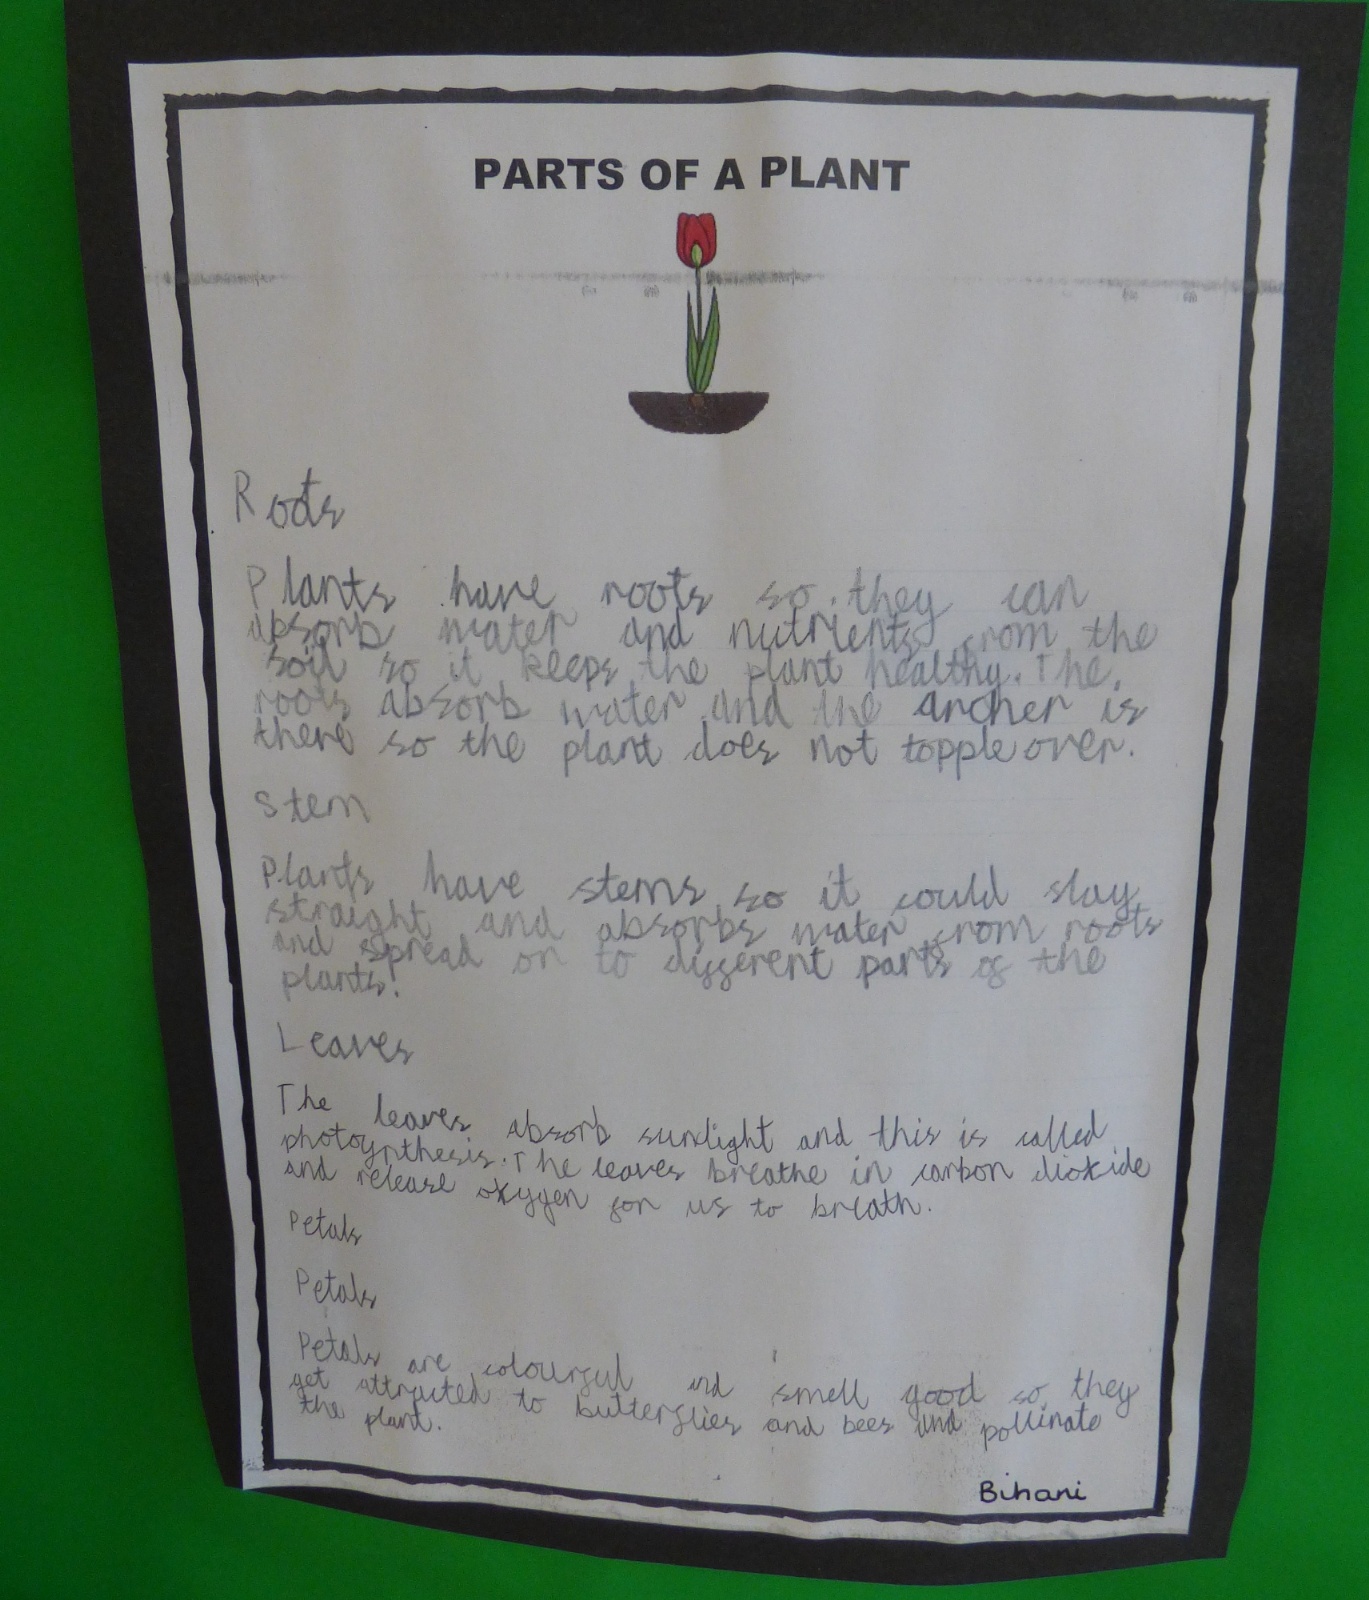 PARTS OF A PLANT
Roots
Plants have roots so they can
absorb water and nutrients from the
soil so it keeps the plant healthy. The
roots absorb water and the archer is
there so the plant does not topple over.
Stem
Plants have stems so it could stay
straight and absorbs water from roots
and spread on to different parts of the
plants.
Leaves
The leaves absorb sunlight and this is called
photoynthesis. The leaves breathe in carbon dioxide
and release oxygen for us to breath.
Petals
Petals
Petals are colourful and smell good so they
get attracted to butterflies and bees and pollinate
the plant.
Bihani